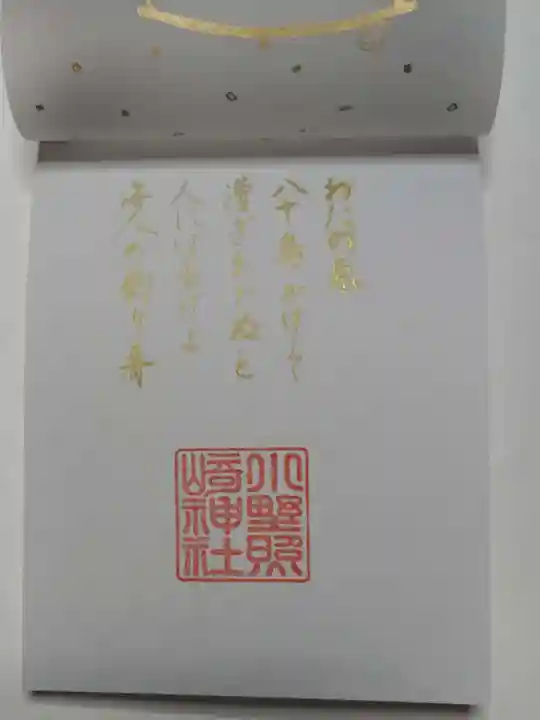 わたの原
八十島かけて
漕ぎ出でぬと
人には告げよ
海人の釣り舟
小野照
崎神社